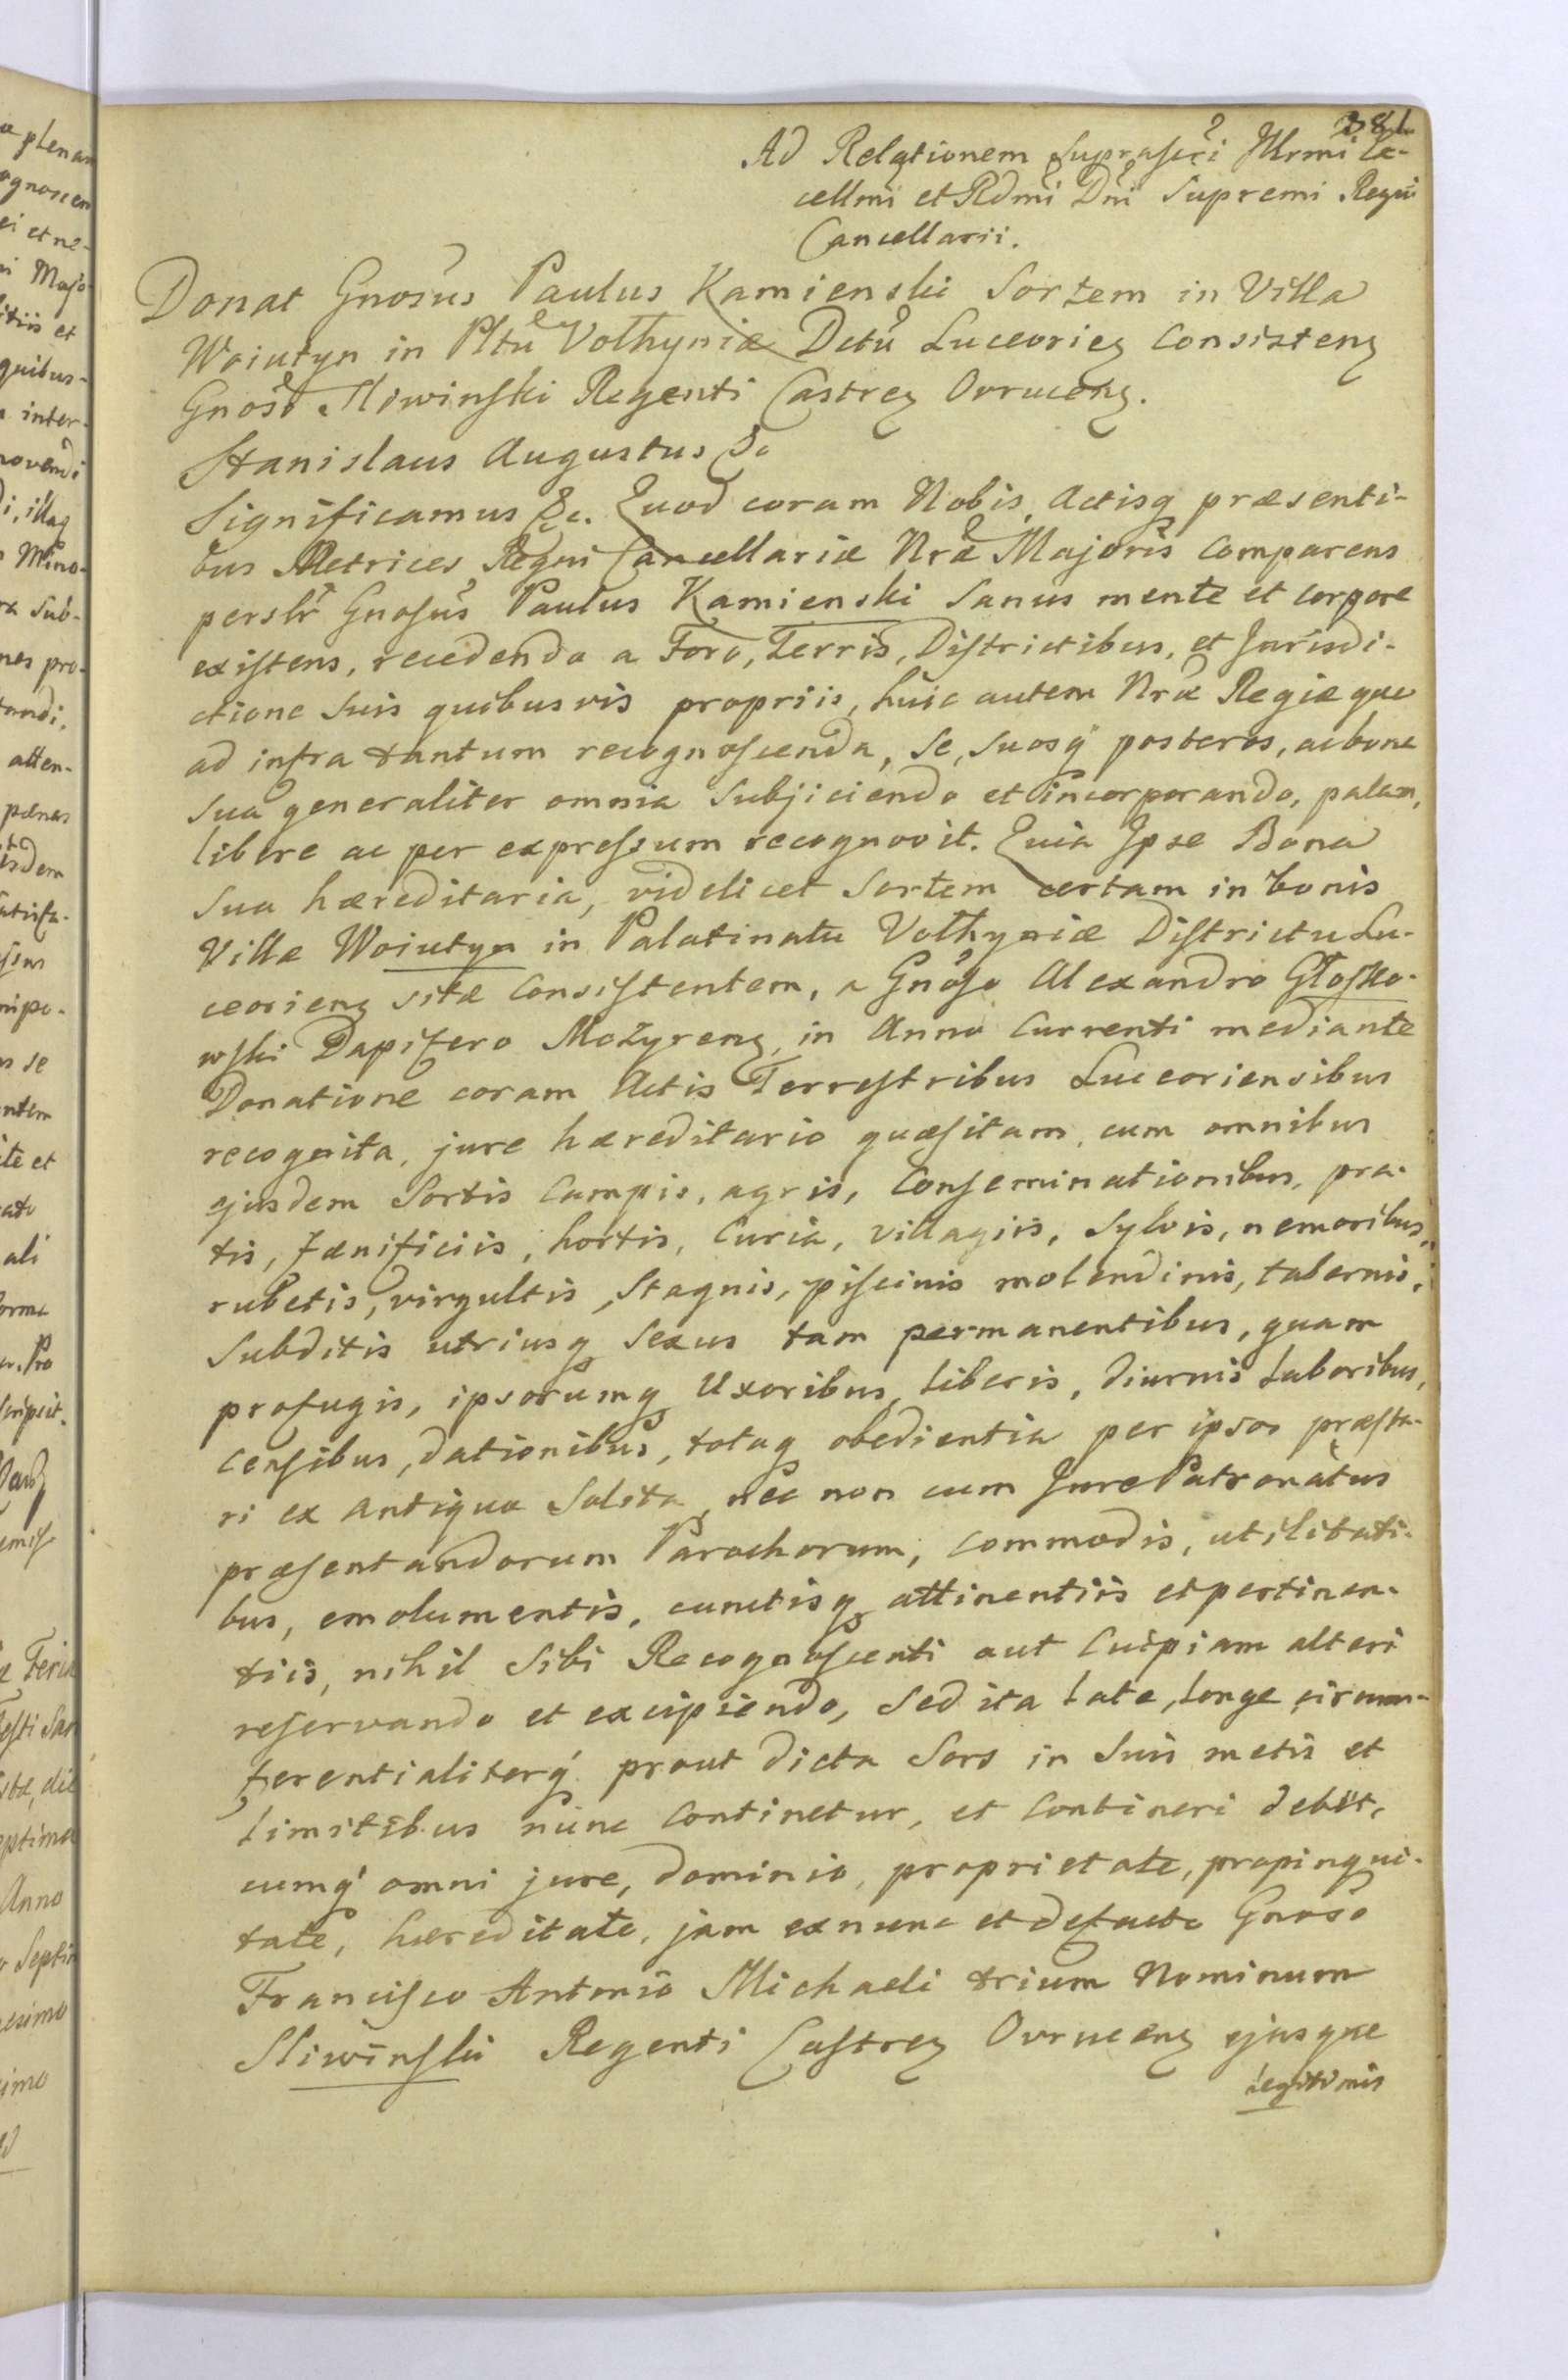 381
Ad Relationem suprascri Illrmi Ex-
cellmi et Rdmi Dni Supremi Regni
Cancellarii.
Donat Gnosus Paulus Kamienski Sortem in Villa
Woiutyn in Pltu Volhyniæ Dctu Luceorien Consisten
Gnoso Sliwinski Regenti Castren Ovrucen.
Stanislaus Augustus &c
Significamus &c. Quod coram Nobis, Actisq præsenti-
bus Metrices Regni Cancellariæ Nræ Majoris Comparens
perslr Gnosus Paulus Kamienski Sanus mente et corpore
existens, recedendo a Foro, Terris, Districtibus, et Jurisdi-
ctione Suis quibusvis propriis, huic autem Nræ Regiæ quo
ad infra tantum recognoscenda, se, suosq posteros, ac bona
sua generaliter omnia Subjiciendo et incorporando, palam,
libere ac per expressum recognovit. Quia Ipse Bona
sua hæreditaria, videlicet Sortem certam in bonis
Villæ Woiutyn in Palatinatu Volhyniæ Districtu Lu-
ceorien sitæ Consistentem, a Gnoso Alexandro Głosko-
wski Dapifero Mozyren, in Anno Currenti mediante
Donatione coram Actis Terrestribus Luceoriensibus
recognita, jure hæreditario quæsitam, cum omnibus
ejusdem Sortis Campis, agris, Conseminationibus, pra-
tis, fænificiis, hortis, Curia, villagiis, Sylvis, nemoribus,
rubetis, virgultis, Stagnis, piscinis molendinis, tabernis,
Subditis utriusq Sexus tam permanentibus, quam
profugis, ipsorumq Uxoribus, liberis, diurnis laboribus,
censibus, dationibus, totaq obedientia per ipsos præsta-
ri ex antiquo Solita, nec non cum Jure Patronatus
præsentandorum Parochorum, commodis, utilitati-
bus, emolumentis, cunctisq attinentiis et pertinen-
tiis, nihil Sibi Recognoscenti aut Cuipiam alteri
reservando et excipiendo, Sed ita late, longe, circum-
ferentialiterq prout dicta Sors in Suis metis et
limitibus nunc Continetur, et Contineri debet,
cumq omni jure, dominio, proprietate, propinqui-
tate, hæreditate, jam exnunc et defacto Gnoso
Francisco Antonio Michaeli trium Nominum
Sliwinski Regenti Castren Ovrucen ejusque
legitimis